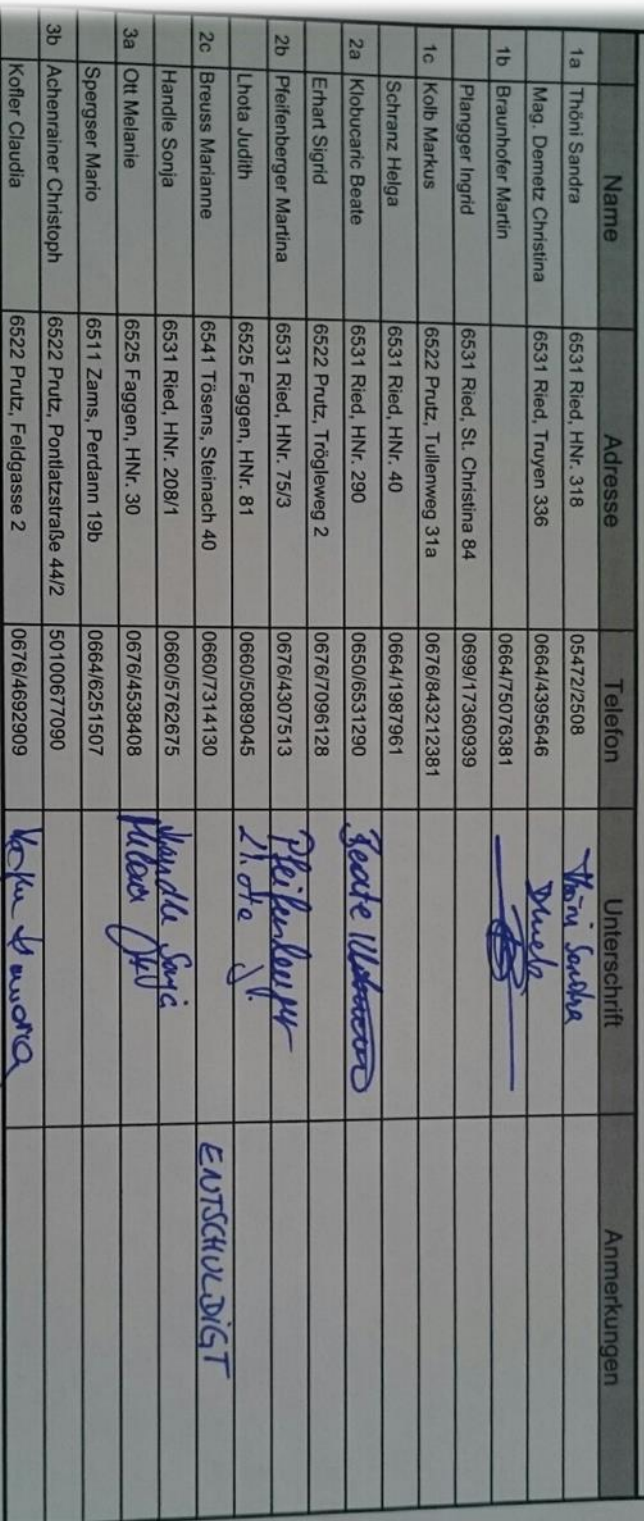 Name Adresse Telefon Unterschrift Anmerkungen
1a Thöni Sandra 6531 Ried, HNr. 318 05472/2508 Thöni Sandra
Mag. Demetz Christina 6531 Ried, Truyen 336 0664/4395646
1b Braunhofer Martin 0664/75076381
Plangger Ingrid 6531 Ried, St. Christina 84 0699/17360939
1c Kolb Markus 6522 Prutz, Tullenweg 31a 0676/843212381
Schranz Helga 6531 Ried, HNr. 40 0664/1987961
2a Klobucaric Beate 6531 Ried, HNr. 290 0650/6531290 Beate
Erhart Sigrid 6522 Prutz, Trögleweg 2 0676/7096128
2b Pfeifenberger Martina 6531 Ried, HNr. 75/3 0676/4307513 Pfeifenberger
Lhota Judith 6525 Faggen, HNr. 81 0660/5089045 Lhota J.
2c Breuss Marianne 6541 Tösens, Steinach 40 0660/7314130 ENTSCHULDIGT
Handle Sonja 6531 Ried, HNr. 208/1 0660/5762675 Handle Sonja
3a Ott Melanie 6525 Faggen, HNr. 30 0676/4538408
Spergser Mario 6511 Zams, Perdann 19b 0664/6251507
3b Achenrainer Christoph 6522 Prutz, Pontlatzstraße 44/2 50100677090
Kofler Claudia 6522 Prutz, Feldgasse 2 0676/4692909